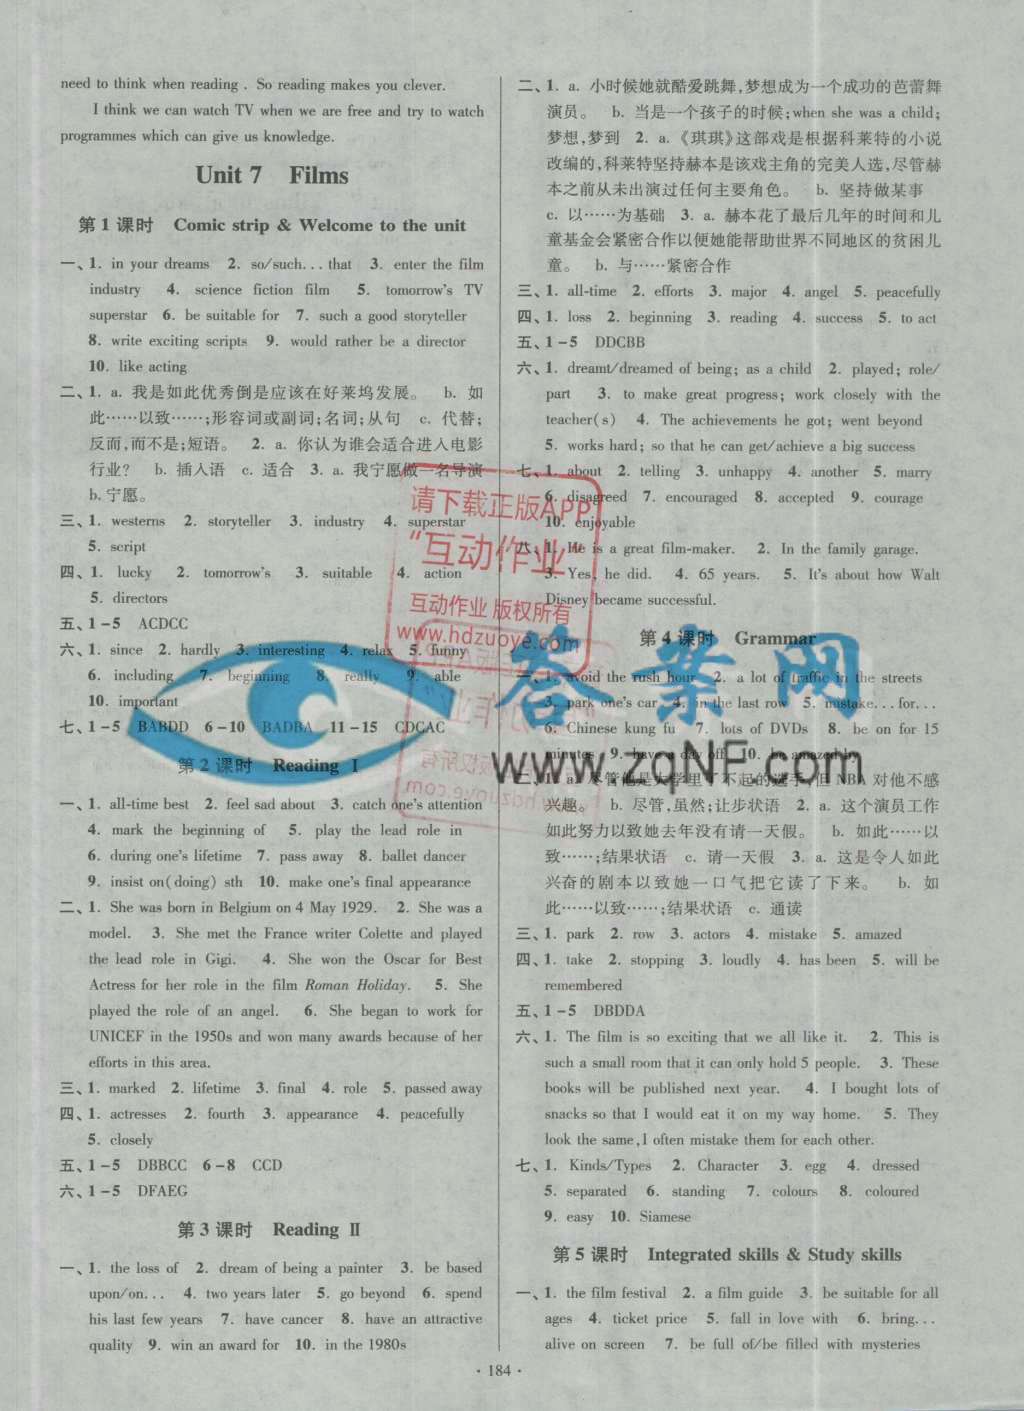 need to think when reading . So reading makes you clever.
I think we can watch TV when we are free and try to watch
programmes which can give us knowledge.
Unit 7 Films
第 1 课时 Comic strip & Welcome to the unit
一、1. in your dreams 2. so/such. . . that 3. enter the film
industry 4. science fiction film 5. tomorrow's TV
superstar 6. be suitable for 7. such a good storyteller
8. write exciting scripts 9. would rather be a director
10. like acting
二、1. a. 我是如此优秀倒是应该在好莱坞发展。 b. 如
此……以致……;形容词或副词;名词;从句 c. 代替;
反而,而不是;短语。 2. a. 你认为谁会适合进入电影
行业? b. 插入语 c. 适合 3. a. 我宁愿做一名导演
b. 宁愿。
三、1. westerns 2. storyteller 3. industry 4. superstar
5. script
四、1. lucky 2. tomorrow's 3. suitable 4. action
5. directors
五、1-5 ACDCC
六、1. since 2. hardly 3. interesting 4. relax 5. funny
6. including 7. beginning 8. really 9. able
10. important
七、1-5 BABDD 6-10 BADBA 11-15 CDCAC
第 2 课时 Reading Ⅰ
一、1. all-time best 2. feel sad about 3. catch one's attention
4. mark the beginning of 5. play the lead role in
6. during one's lifetime 7. pass away 8. ballet dancer
9. insist on(doing) sth 10. make one's final appearance
二、1. She was born in Belgium on 4 May 1929. 2. She was a
model. 3. She met the France writer Colette and played
the lead role in Gigi. 4. She won the Oscar for Best
Actress for her role in the film Roman Holiday. 5. She
played the role of an angel. 6. She began to work for
UNICEF in the 1950s and won many awards because of her
efforts in this area.
三、1. marked 2. lifetime 3. final 4. role 5. passed away
四、1. actresses 2. fourth 3. appearance 4. peacefully
5. closely
五、1-5 DBBCC 6-8 CCD
六、1-5 DFAEG
第 3 课时 Reading Ⅱ
一、1. the loss of 2. dream of being a painter 3. be based
upon/on. . . 4. two years later 5. go beyond 6. spend
his last few years 7. have cancer 8. have an attractive
quality 9. win an award for 10. in the 1980s
二、1. a. 小时候她就酷爱跳舞,梦想成为一个成功的芭蕾舞
演员。 b. 当是一个孩子的时候;when she was a child;
梦想,梦到 2. a.《琪琪》这部戏是根据科莱特的小说
改编的,科莱特坚持赫本是该戏主角的完美人选,尽管赫
本之前从未出演过任何主要角色。 b. 坚持做某事
c. 以……为基础 3. a. 赫本花了最后几年的时间和儿
童基金会紧密合作以便她能帮助世界不同地区的贫困儿
童。 b. 与……紧密合作
三、1. all-time 2. efforts 3. major 4. angel 5. peacefully
四、1. loss 2. beginning 3. reading 4. success 5. to act
五、1-5 DDCBB
六、1. dreamt/dreamed of being; as a child 2. played; role/
part 3. to make great progress; work closely with the
teacher(s) 4. The achievements he got; went beyond
5. works hard; so that he can get/achieve a big success
七、1. about 2. telling 3. unhappy 4. another 5. marry
6. disagreed 7. encouraged 8. accepted 9. courage
10. enjoyable
八、1. He is a great film-maker. 2. In the family garage.
3. Yes, he did. 4. 65 years. 5. It's about how Walt
Disney became successful.
第 4 课时 Grammar
一、1. avoid the rush hour 2. a lot of traffic in the streets
3. park one's car 4. in the last row 5. mistake. . . for. . .
6. Chinese kung fu 7. lots of DVDs 8. be on for 15
minutes 9. have a day off 10. be amazed by
二、1. a. 尽管他是大学里了不起的选手,但 NBA 对他不感
兴趣。 b. 尽管,虽然;让步状语 2. a. 这个演员工作
如此努力以致她去年没有请一天假。 b. 如此……以
致……;结果状语 c. 请一天假 3. a. 这是令人如此
兴奋的剧本以致她一口气把它读了下来。 b. 如
此……以致……;结果状语 c. 通读
三、1. park 2. row 3. actors 4. mistake 5. amazed
四、1. take 2. stopping 3. loudly 4. has been 5. will be
remembered
五、1-5 DBDDA
六、1. The film is so exciting that we all like it. 2. This is
such a small room that it can only hold 5 people. 3. These
books will be published next year. 4. I bought lots of
snacks so that I would eat it on my way home. 5. They
look the same,I often mistake them for each other.
七、1. Kinds/Types 2. Character 3. egg 4. dressed
5. separated 6. standing 7. colours 8. coloured
9. easy 10. Siamese
第 5 课时 Integrated skills & Study skills
一、1. the film festival 2. a film guide 3. be suitable for all
ages 4. ticket price 5. fall in love with 6. bring. . .
alive on screen 7. be full of/be filled with mysteries
· 184 ·
请下载正版APP
“互动作业”
互动作业 版权所有
www.hdzuoye.com
答案网
www.zqNF.com